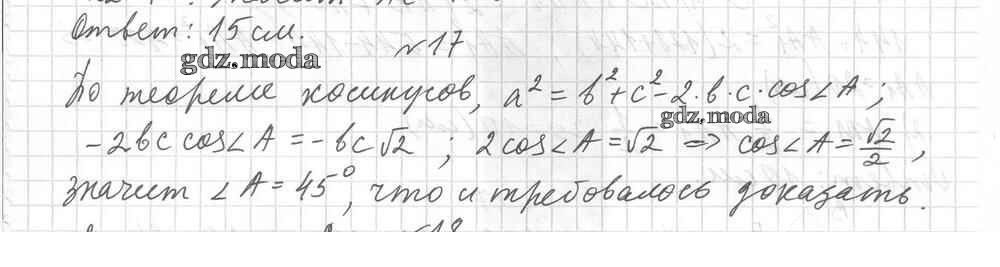 Ответ: 15 см.
gdz.moda
№17
По теореме косинусов, a² = b² + c² - 2·b·c·cos∠A;
gdz.moda
-2bc cos∠A = -bc√2; 2cos∠A = √2 => cos∠A = √2/2,
значит ∠A = 45°, что и требовалось доказать.